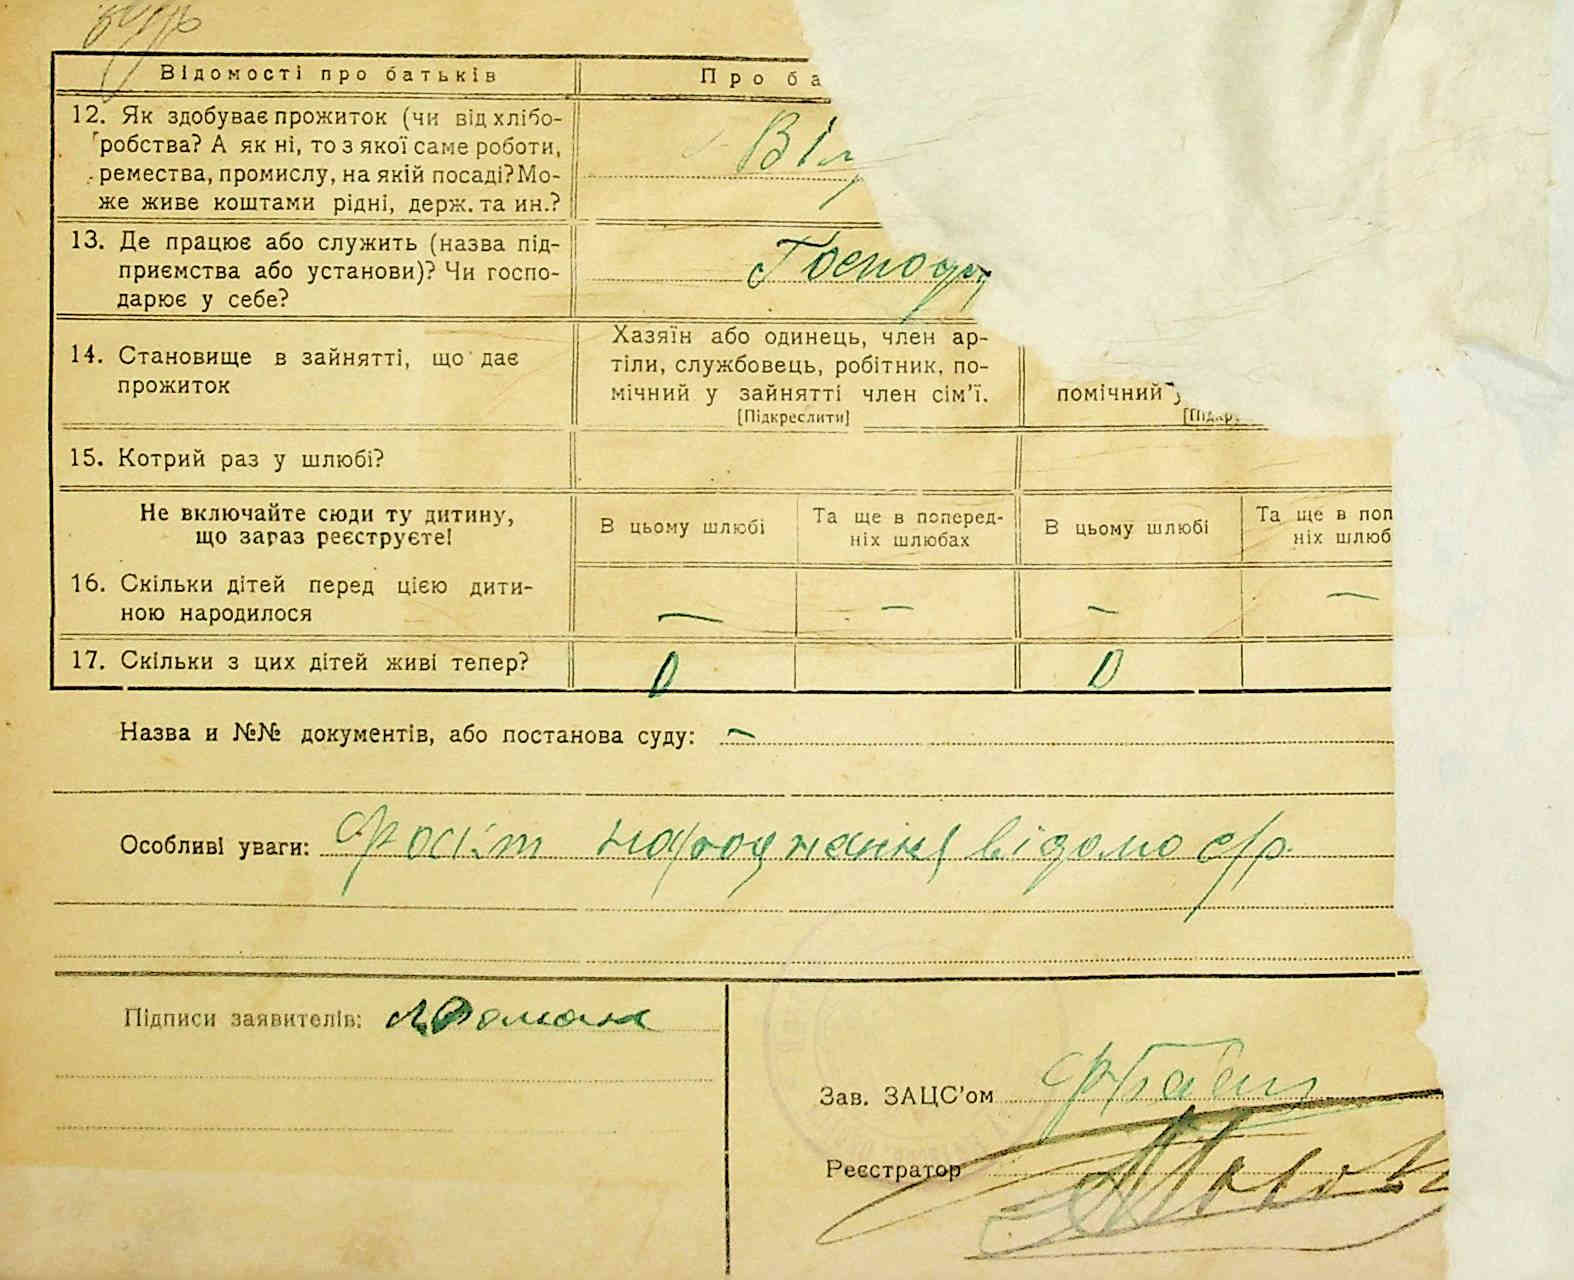 Відомості про батьків
Про ба
12. Як здобуває прожиток (чи від хлібо-
робства? А як ні, то з якої саме роботи,
ремества, промислу, на якій посаді? Мо-
же живе коштами рідні, держ. та ин.?
13. Де працює або служить (назва під-
приємства або установи)? Чи госпо-
дарює у себе?
Господ
14. Становище в зайнятті, що дає
прожиток
Хазяїн або одинець, член ар-
тіли, службовець, робітник, по-
мічний у зайнятті член сім'ї.
[Підкреслити]
помічний у
[Підкр
15. Котрий раз у шлюбі?
Не включайте сюди ту дитину,
що зараз реєструєте!
В цьому шлюбі
Та ще в поперед-
ніх шлюбах
В цьому шлюбі
Та ще в поп
ніх шлюб
16. Скільки дітей перед цією дити-
ною народилося
— — — —
17. Скільки з цих дітей живі тепер?
0 0
Назва и №№ документів, або постанова суду: —
Особливі уваги: Факт народження відомо с/р
Підписи заявителів:
Зав. ЗАЦС'ом
Реєстратор